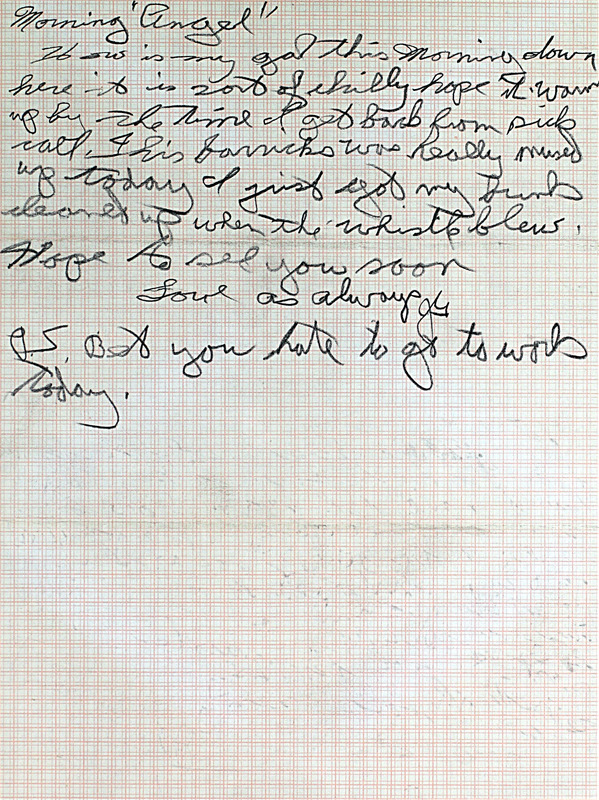 Morning "Angel"
How is my gal this Morning down
here it is sort of chilly hope it warm
up by the time I get back from sick
call. This barricks was really mused
up today I just got my bunk
cleaned up when the whistle blew.
Hope to see you soon
Love as always
P.S. Bet you hate to go to work
today.